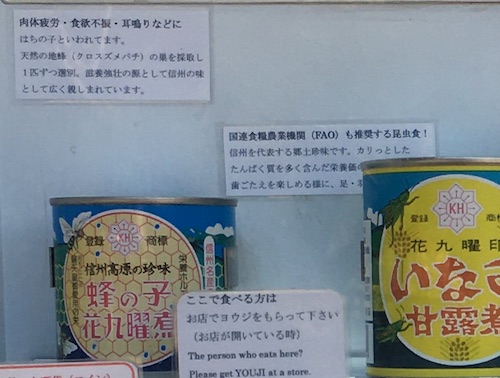 肉体疲労・食欲不振・耳鳴りなどに
はちの子といわれてます。
天然の地蜂（クロスズメバチ）の巣を採取し
１匹ずつ選別。滋養強壮の源として信州の味
として広く親しまれています。
国連食糧農業機関（FAO）も推奨する昆虫食！
信州を代表する郷土珍味です。カリっとした
たんぱく質を多く含んだ栄養価の
歯ごたえを楽しめる様に、足・
登録 KH 商標
信州高原の珍味
蜂の子
花九曜煮
信州名産
登録 KH 商
花九曜印
いなご
甘露煮
ここで食べる方は
お店でヨウジをもらって下さい
（お店が開いている時）
The person who eats here?
Please get YOUJI at a store.